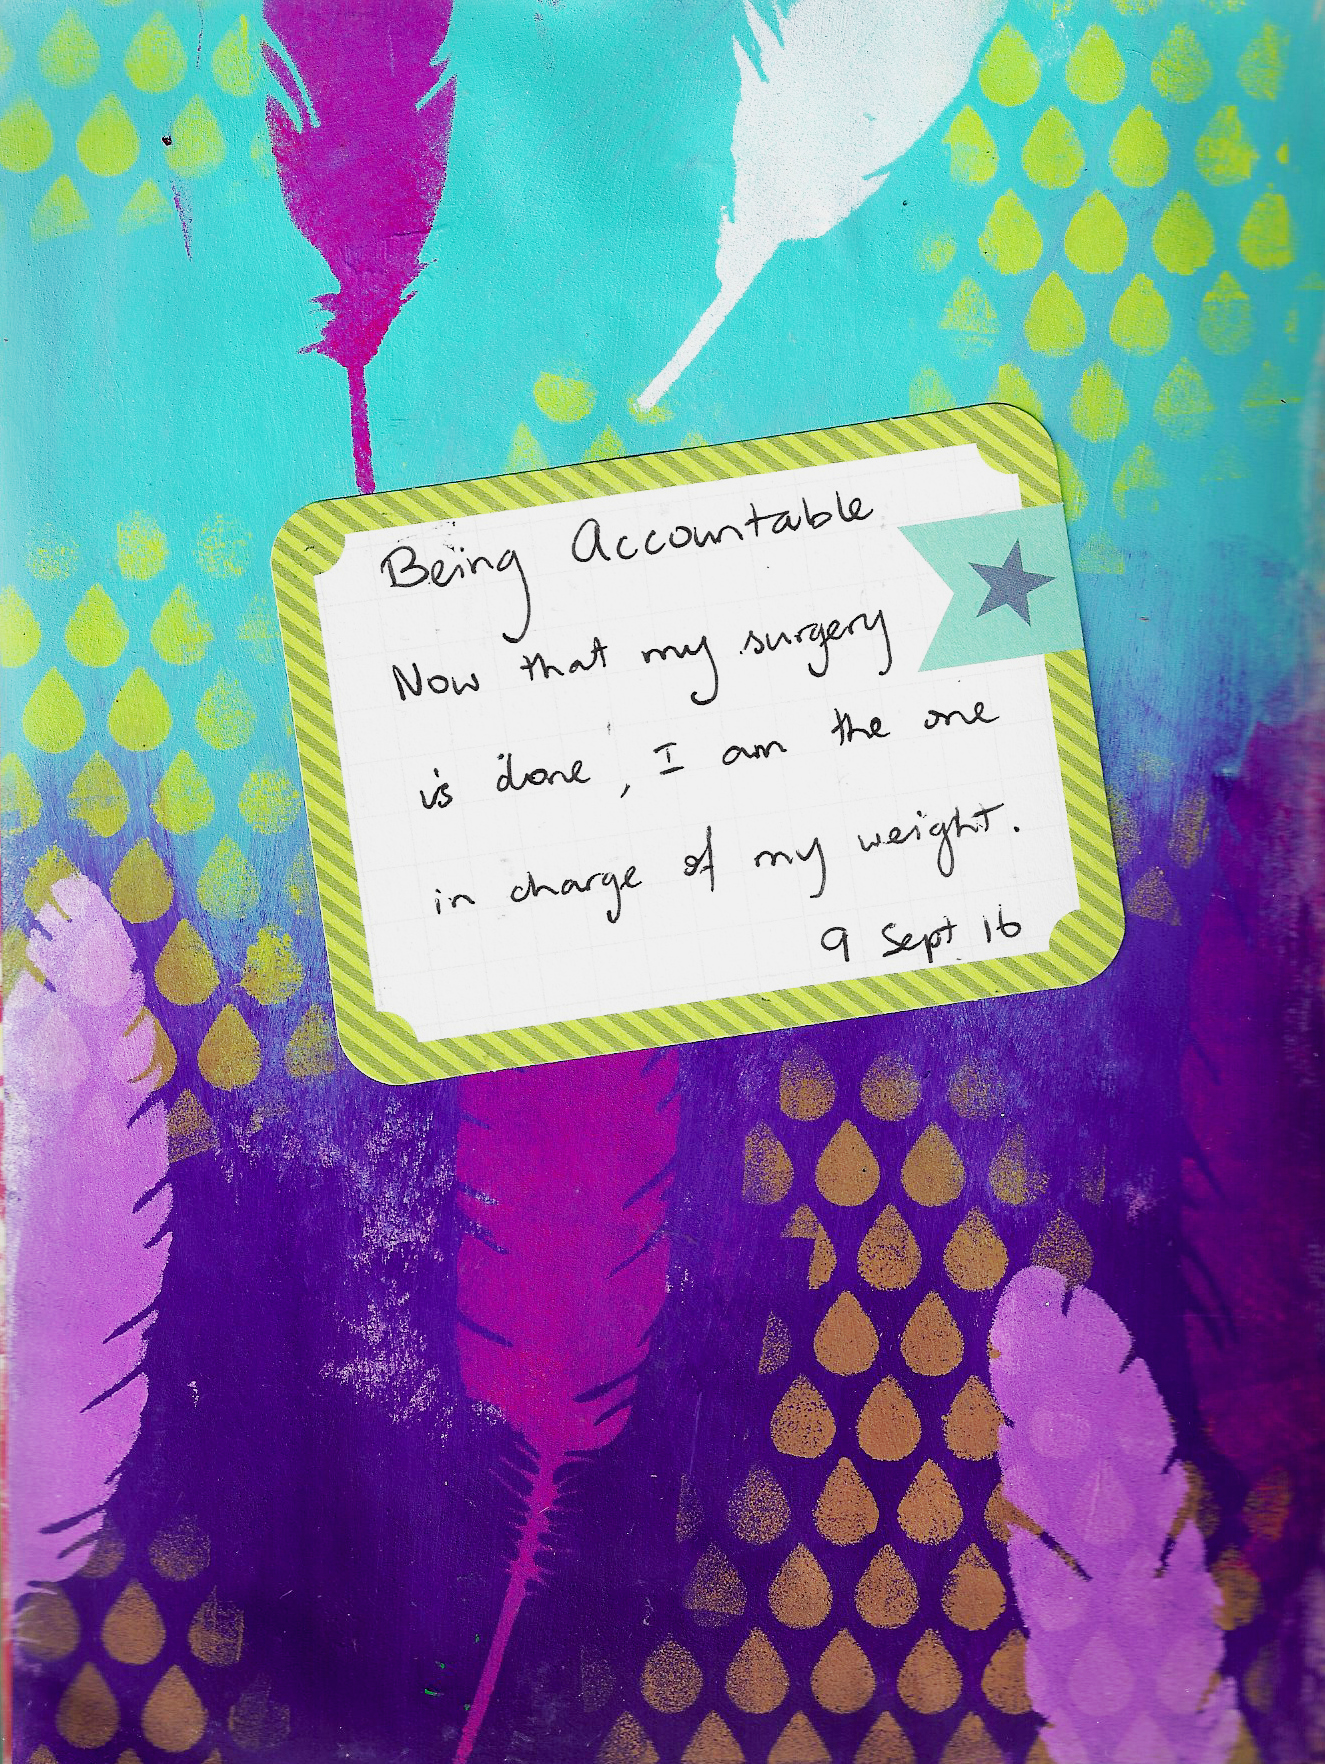 Being Accountable
Now that my surgery
is done, I am the one
in charge of my weight.
9 Sept 16